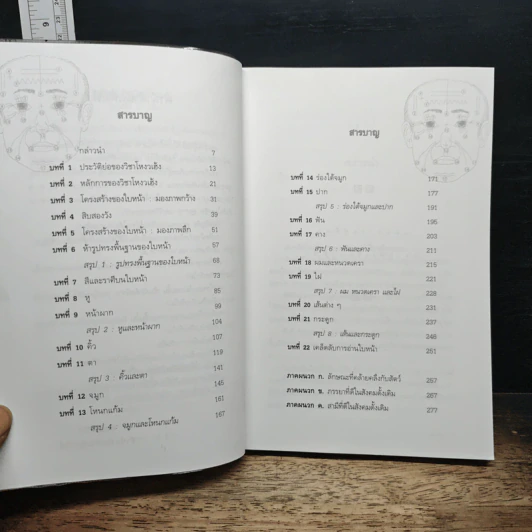 สารบาญ
กล่าวนำ 7
บทที่ 1 ประวัติย่อของวิชาโหงวเฮ้ง 13
บทที่ 2 หลักการของวิชาโหงวเฮ้ง 21
บทที่ 3 โครงสร้างของใบหน้า : มองภาพกว้าง 31
บทที่ 4 สิบสองวัง 39
บทที่ 5 โครงสร้างของใบหน้า : มองภาพลึก 51
บทที่ 6 ห้ารูปทรงพื้นฐานของใบหน้า 57
สรุป 1 : รูปทรงพื้นฐานของใบหน้า 68
บทที่ 7 สีและราศีบนใบหน้า 73
บทที่ 8 หู 85
บทที่ 9 หน้าผาก 95
สรุป 2 : หูและหน้าผาก 104
บทที่ 10 คิ้ว 107
บทที่ 11 ตา 119
สรุป 3 : คิ้วและตา 141
บทที่ 12 จมูก 145
บทที่ 13 โหนกแก้ม 161
สรุป 4 : จมูกและโหนกแก้ม 167
สารบาญ
บทที่ 14 ร่องใต้จมูก 171
บทที่ 15 ปาก 177
สรุป 5 : ร่องใต้จมูกและปาก 191
บทที่ 16 ฟัน 195
บทที่ 17 คาง 203
สรุป 6 : ฟันและคาง 211
บทที่ 18 ผมและหนวดเครา 215
บทที่ 19 ไฝ 221
สรุป 7 : ผม หนวดเครา และไฝ 228
บทที่ 20 เส้นต่าง ๆ 231
บทที่ 21 กระดูก 237
สรุป 8 : เส้นและกระดูก 248
บทที่ 22 เคล็ดลับการอ่านใบหน้า 251
ภาคผนวก ก. ลักษณะที่คล้ายคลึงกับสัตว์ 257
ภาคผนวก ข. ภรรยาที่ดีในสังคมดั้งเดิม 267
ภาคผนวก ค. สามีที่ดีในสังคมดั้งเดิม 277
6